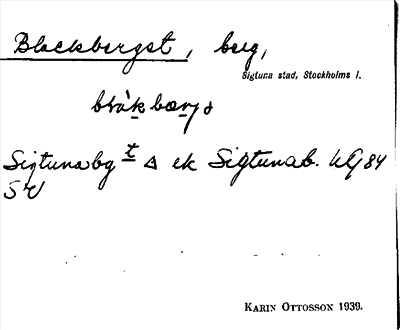 Blacksbergst, berg,
Sigtuna stad, Stockholms l.
Sigtunabg t Δ ek Sigtunab. UG 84
SV
KARIN OTTOSSON 1939.